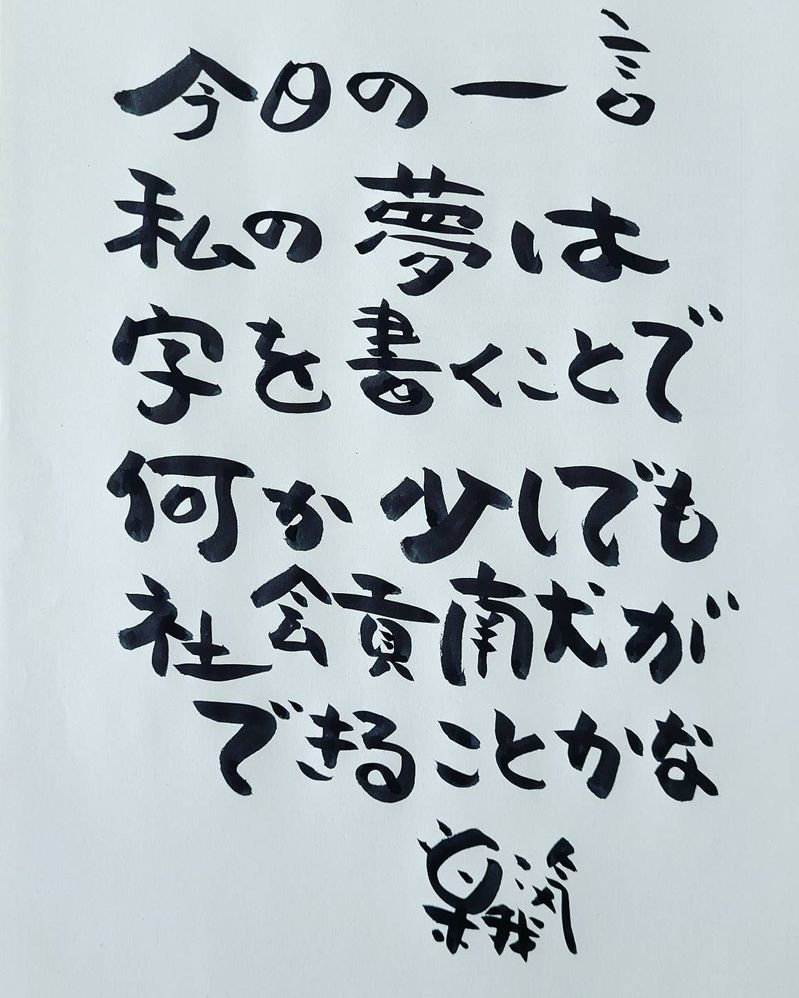 今日の一言
私の夢は
字を書くことで
何か少しでも
社会貢献が
できることかな